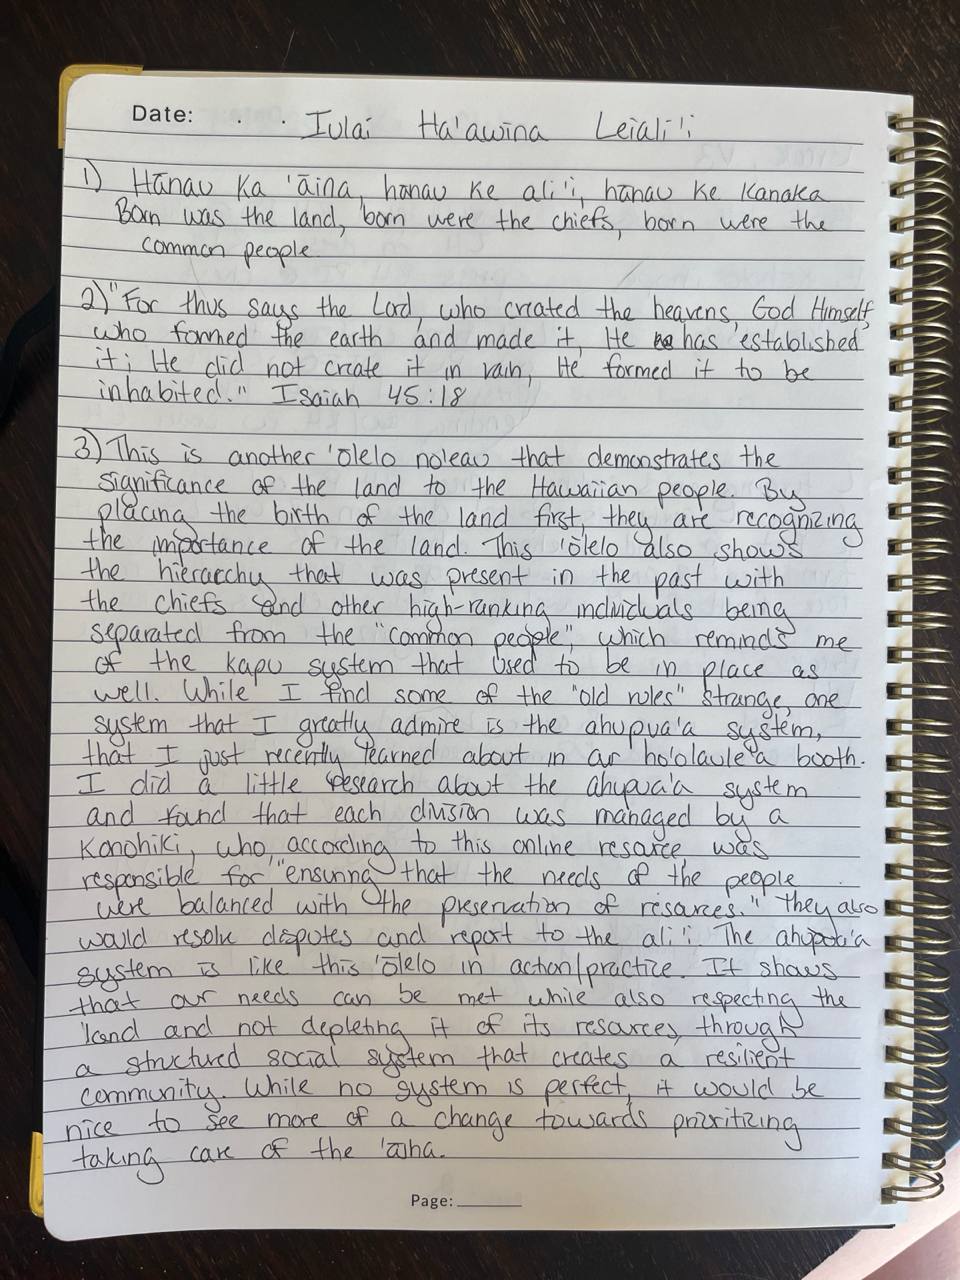 Date: Iulai Ha'awina Leiali'i
1) Hānau ka 'āina, hānau ke ali'i, hānau ke kanaka
Born was the land, born were the chiefs, born were the
common people.
2) "For thus says the Lord, who created the heavens, God Himself,
who formed the earth and made it, He has established
it; He did not create it in vain, He formed it to be
inhabited." Isaiah 45:18
3) This is another 'ōlelo no'eau that demonstrates the
significance of the land to the Hawaiian people. By
placing the birth of the land first, they are recognizing
the importance of the land. This 'ōlelo also shows
the hierarchy that was present in the past with
the chiefs and other high-ranking individuals being
separated from the "common people", which reminds me
of the kapu system that used to be in place as
well. While I find some of the "old rules" strange, one
system that I greatly admire is the ahupua'a system,
that I just recently learned about in our ho'olaule'a booth.
I did a little research about the ahupua'a system
and found that each division was managed by a
Konohiki, who, according to this online resource was
responsible for "ensuring that the needs of the people
were balanced with the preservation of resources." They also
would resolve disputes and report to the ali'i. The ahupua'a
system is like this 'ōlelo in action/practice. It shows
that our needs can be met while also respecting the
land and not depleting it of its resources, through
a structured social system that creates a resilient
community. While no system is perfect, it would be
nice to see more of a change towards prioritizing
taking care of the 'āina.
Page: